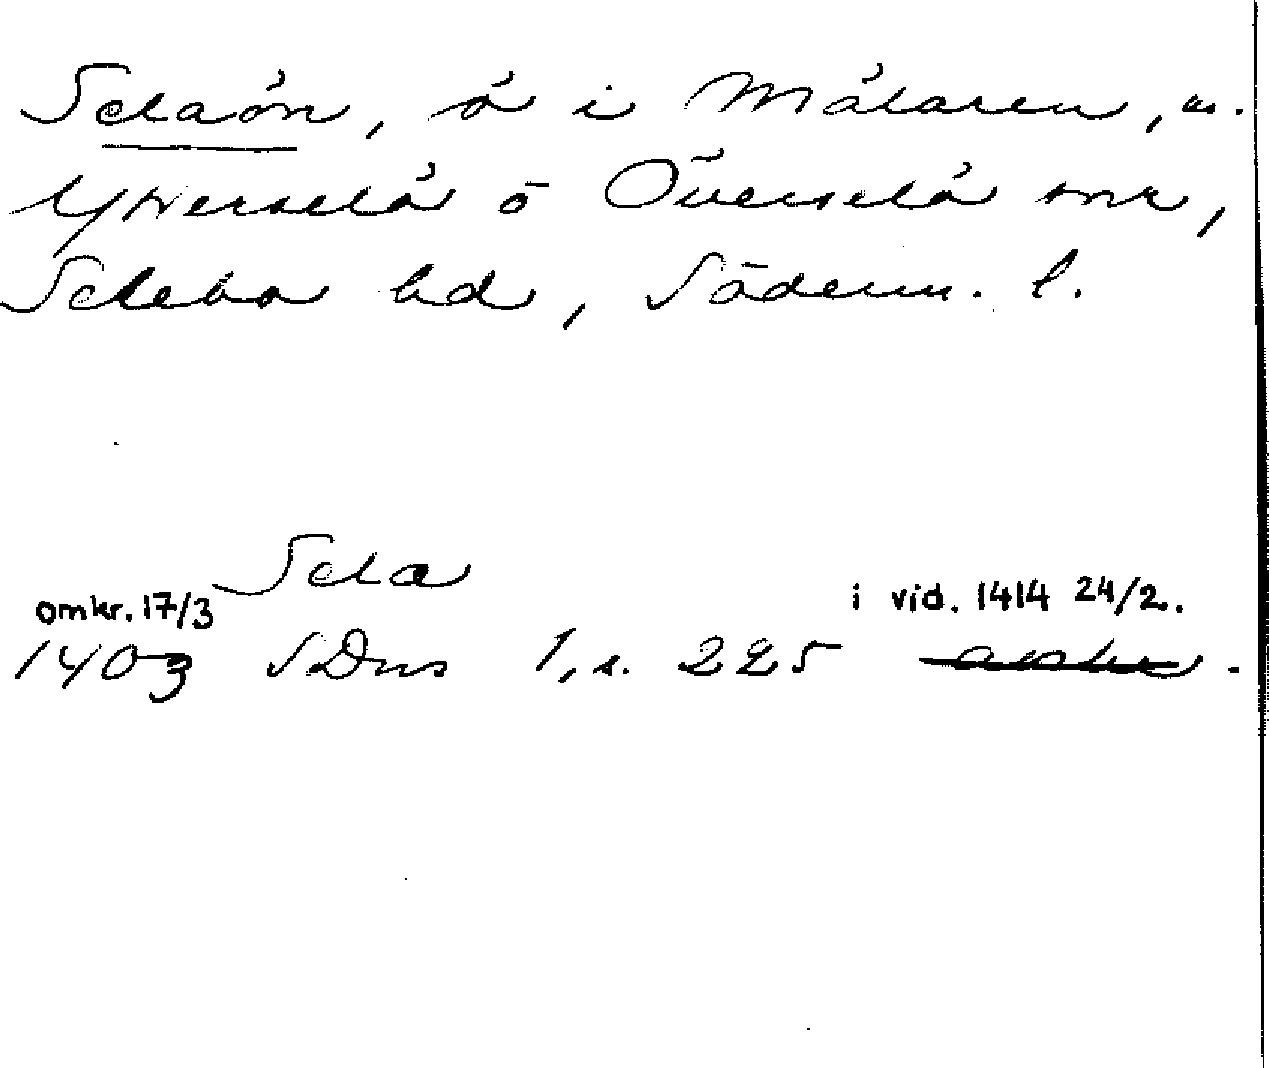 Selaön, ö i Mälaren, m.
Ytterselö o Överselö snr,
Selebo hd, Söderm. l.
Sela
omkr. 17/3 i vid. 1414 24/2.
1403 SDns 1, s. 225